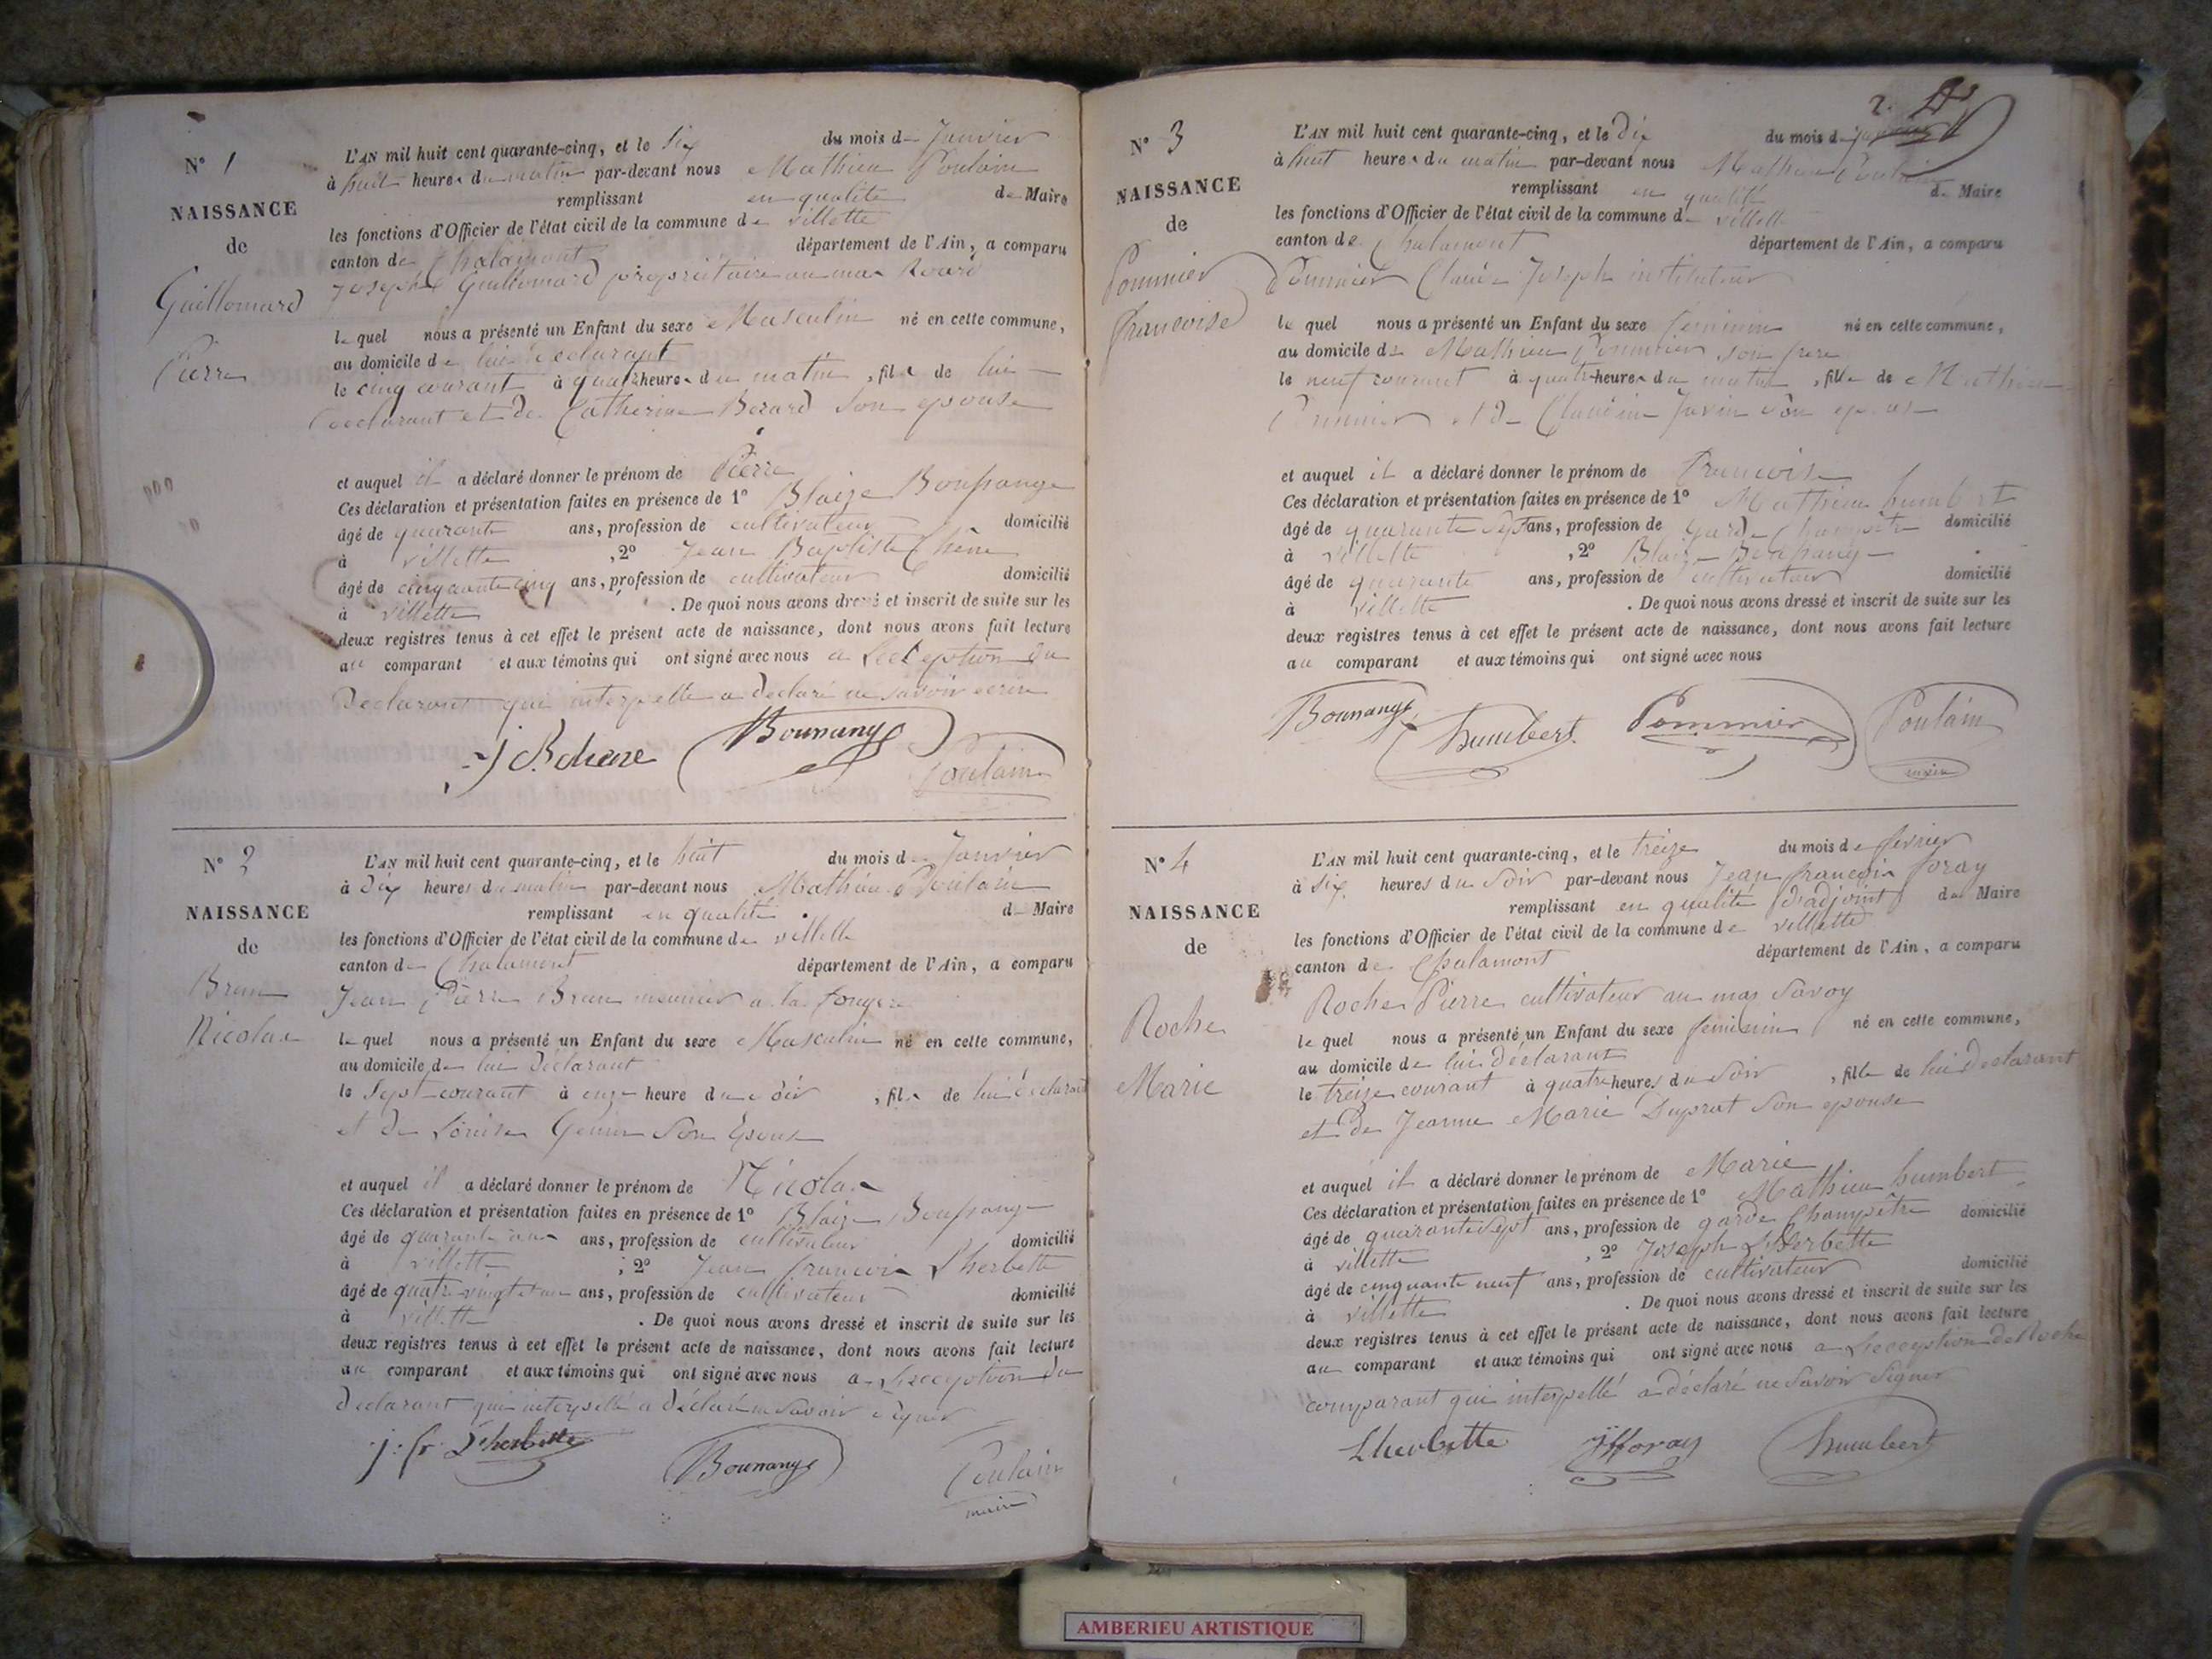 N° 1
NAISSANCE
de
Guillomard
Pierre
L'AN mil huit cent quarante-cinq, et le Six du mois de Janvier
à huit heures du matin par-devant nous Mathieu Poulain
remplissant en qualité de Maire
les fonctions d'Officier de l'état civil de la commune de villette
canton de Chalamont département de l'Ain, a comparu
Joseph Guillomard propriétaire au mas
le quel nous a présenté un Enfant du sexe Masculin né en cette commune,
au domicile de lui déclarant
le cinq courant à quatre heures du matin, fils de lui
declarant et de Catherine Berard son epouse
et auquel il a déclaré donner le prénom de Pierre
Ces déclaration et présentation faites en présence de 1° Blaize
âgé de quarante ans, profession de cultivateur domicilié
à villette, 2° Jean Baptiste Chêne
âgé de cinquante cinq ans, profession de cultivateur domicilié
à villette. De quoi nous avons dressé et inscrit de suite sur les
deux registres tenus à cet effet le présent acte de naissance, dont nous avons fait lecture
au comparant et aux témoins qui ont signé avec nous a Lecception du
Declarant qui interpellé a declaré ne savoir ecrire
Poulain
N° 2
NAISSANCE
de
Brun
Nicolas
L'AN mil huit cent quarante-cinq, et le huit du mois de Janvier
à Dix heures du matin par-devant nous Mathieu Poulain
remplissant en qualité de Maire
les fonctions d'Officier de l'état civil de la commune de villette
canton de Chalamont département de l'Ain, a comparu
Jean Pierre Brun meunier a la
le quel nous a présenté un Enfant du sexe Masculin né en cette commune,
au domicile de lui Déclarant
le Sept courant à onze heure du soir, fils de lui déclarant
et de Louise Genin Son Epouse
et auquel il a déclaré donner le prénom de Nicolas
Ces déclaration et présentation faites en présence de 1° Blaize
âgé de quarante ans, profession de cultivateur domicilié
à villette, 2° Jean francois Lherbette
âgé de quatre vingt et un ans, profession de cultivateur domicilié
à villette. De quoi nous avons dressé et inscrit de suite sur les
deux registres tenus à cet effet le présent acte de naissance, dont nous avons fait lecture
au comparant et aux témoins qui ont signé avec nous a Lecception du
Declarant qui interpellé a Déclaré ne Savoir signer
j: fr Lherbette
Poulain
maire
2.
N° 3
NAISSANCE
de
Pommier
francoise
L'AN mil huit cent quarante-cinq, et le Dix du mois de janvier
à huit heures du matin par-devant nous Mathieu Poulain
remplissant en qualité de Maire
les fonctions d'Officier de l'état civil de la commune de villette
canton de Chalamont département de l'Ain, a comparu
Pommier Claude Joseph instituteur
le quel nous a présenté un Enfant du sexe féminin né en cette commune,
au domicile de Mathieu Pommier son frere
le neuf courant à quatre heures du matin, fille de Mathieu
Pommier et de Claudine son epouse
et auquel il a déclaré donner le prénom de Francoise
Ces déclaration et présentation faites en présence de 1° Mathieu humbert
âgé de quarante Sept ans, profession de garde Champêtre domicilié
à villette, 2° Blaize
âgé de quarante ans, profession de cultivateur domicilié
à villette. De quoi nous avons dressé et inscrit de suite sur les
deux registres tenus à cet effet le présent acte de naissance, dont nous avons fait lecture
au comparant et aux témoins qui ont signé avec nous
humbert Pommier Poulain
maire
N° 4
NAISSANCE
de
Roche
Marie
L'AN mil huit cent quarante-cinq, et le treize du mois de fevrier
à Six heures du Soir par-devant nous Jean francois foray
remplissant en qualité d'adjoint de Maire
les fonctions d'Officier de l'état civil de la commune de villette
canton de Chalamont département de l'Ain, a comparu
Roche Pierre cultivateur au mas Savoy
le quel nous a présenté un Enfant du sexe feminin né en cette commune,
au domicile de lui déclarant
le treize courant à quatre heures du Soir, fille de lui Declarant
et De Jeanne Marie Duprat Son epouse
et auquel il a déclaré donner le prénom de Marie
Ces déclaration et présentation faites en présence de 1° Mathieu humbert
âgé de quarante Sept ans, profession de garde Champêtre domicilié
à villette, 2° Joseph Lherbette
âgé de cinquante neuf ans, profession de cultivateur domicilié
à villette. De quoi nous avons dressé et inscrit de suite sur les
deux registres tenus à cet effet le présent acte de naissance, dont nous avons fait lecture
au comparant et aux témoins qui ont signé avec nous a Lecception de Roche
comparant qui interpellé a déclaré ne Savoir Signer
Lherbette jfforay humbert
AMBERIEU ARTISTIQUE